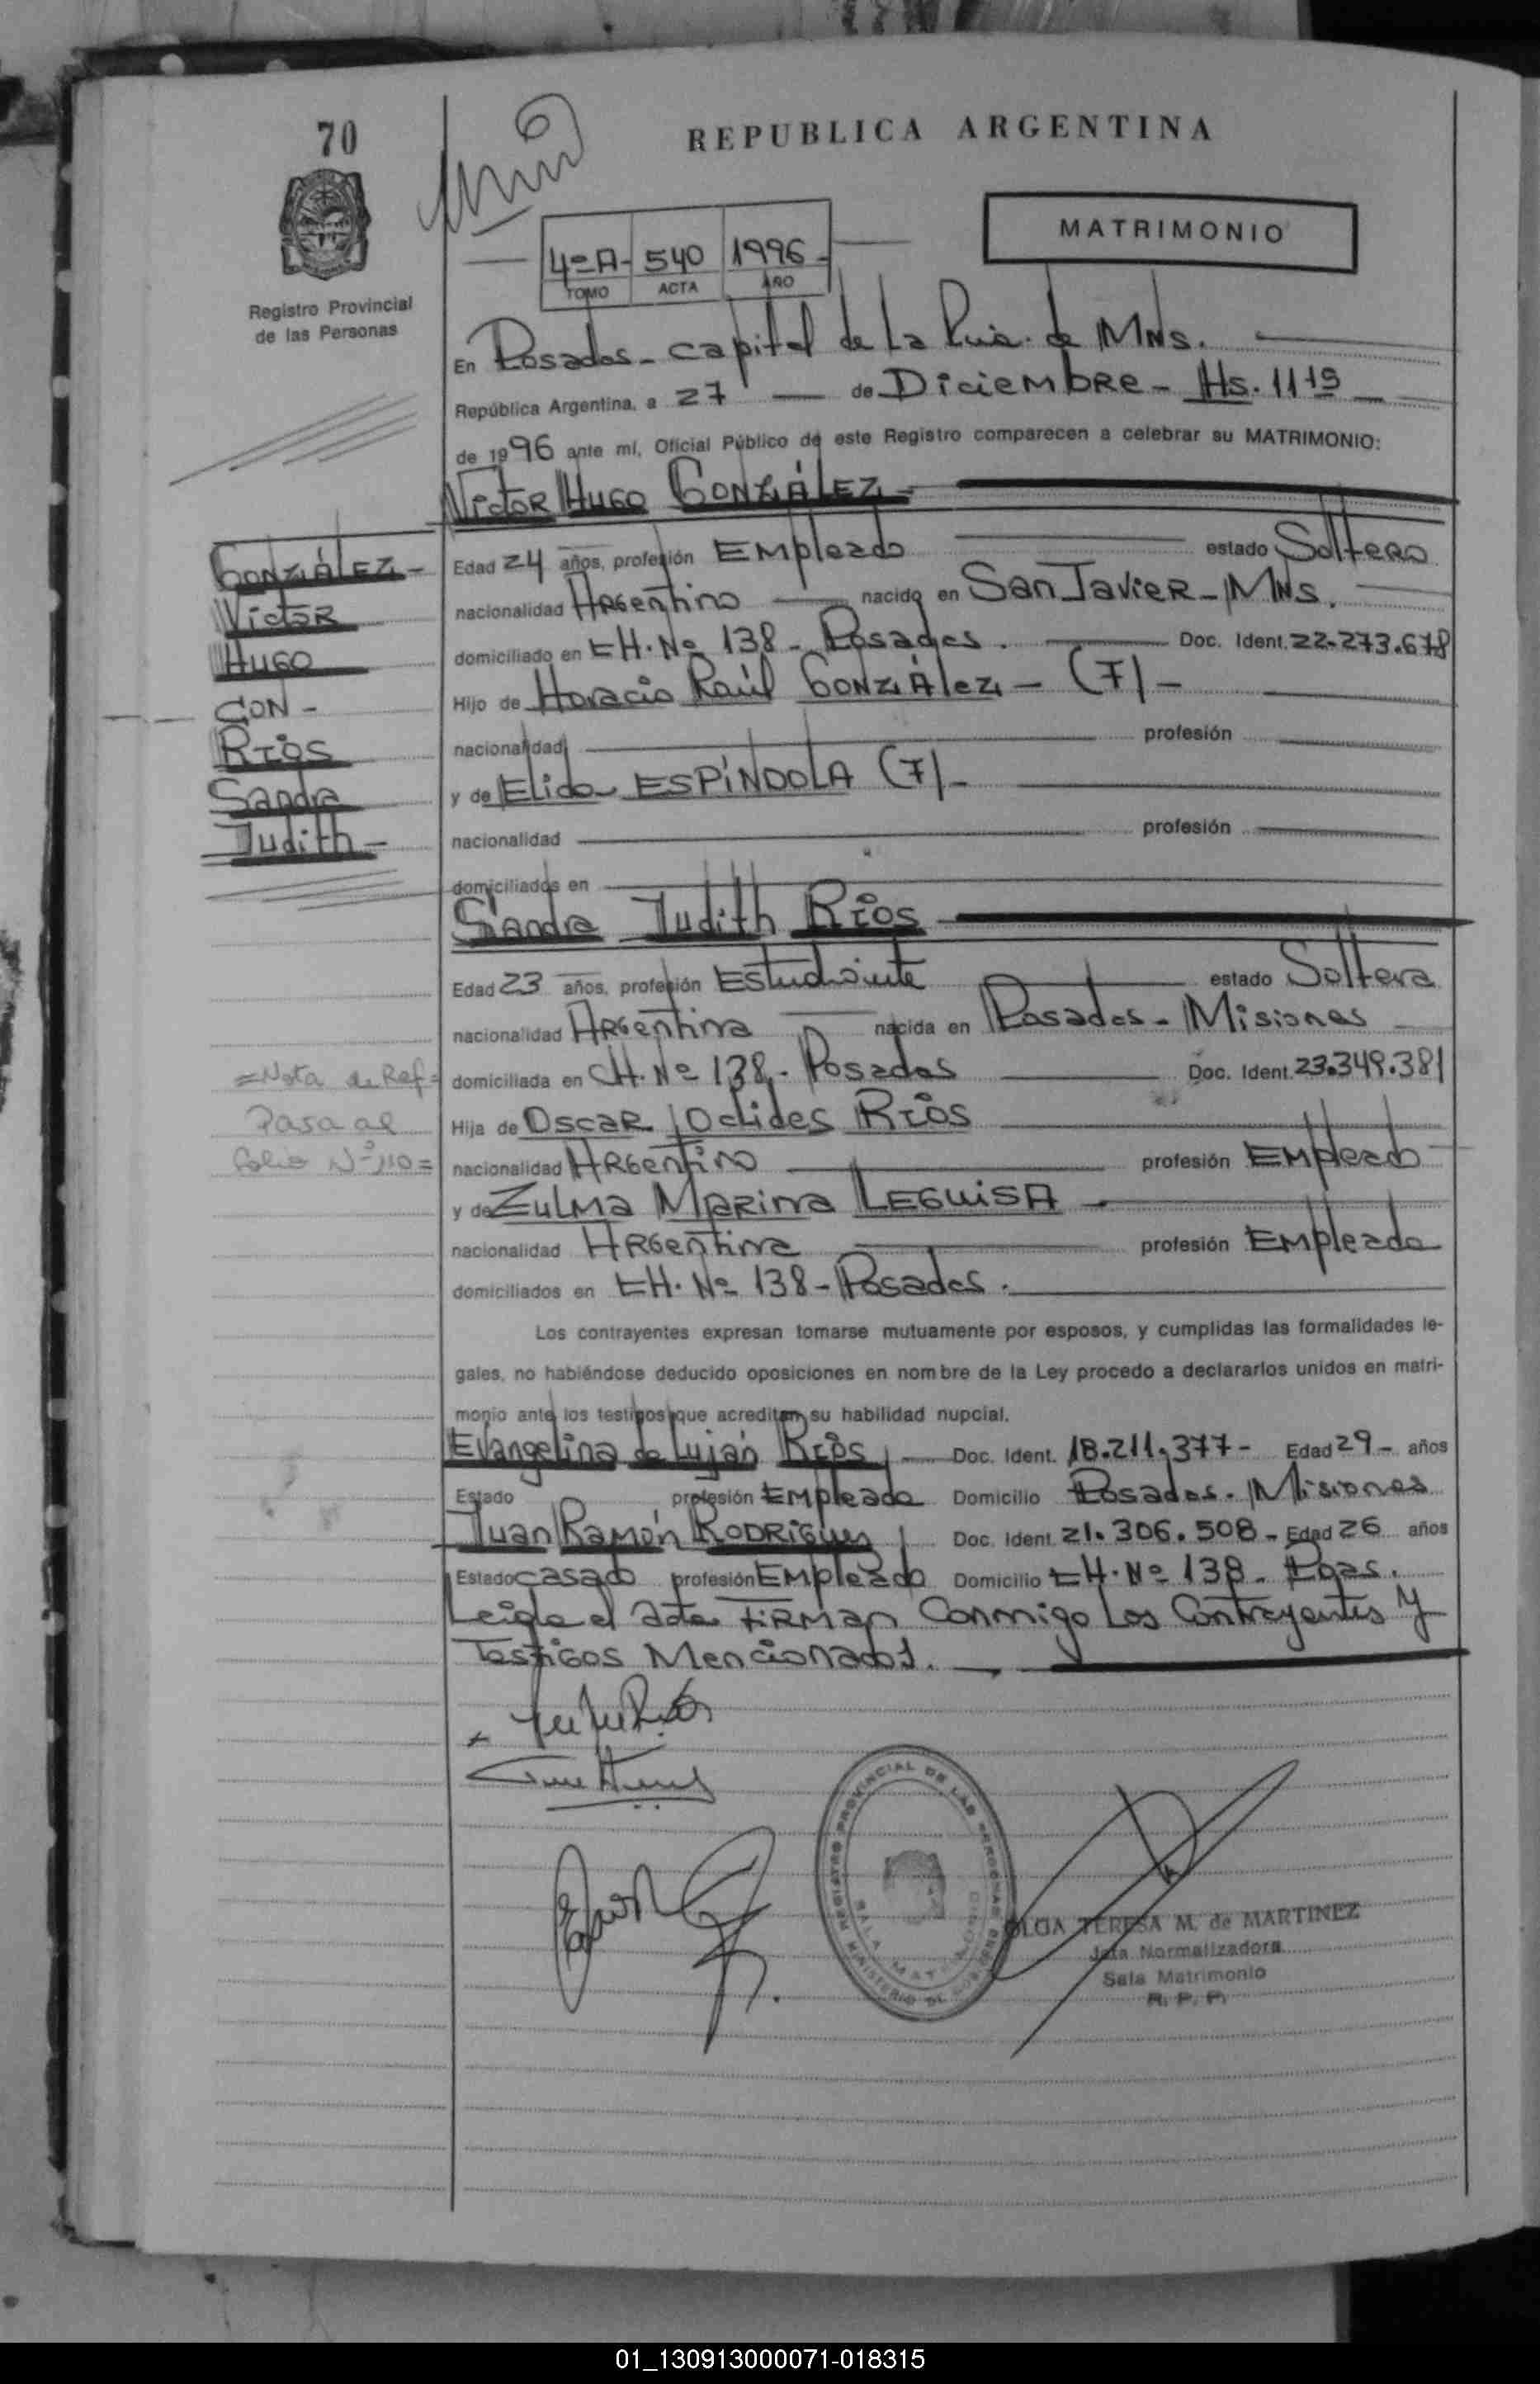 70
REPUBLICA ARGENTINA
MATRIMONIO
4º A- 540 1996-
TOMO ACTA AÑO
Registro Provincial
de las Personas
En Posadas - capital de La Pvia. de MNS.
República Argentina, a 27 de Diciembre - Hs. 11 15
de 1996 ante mí, Oficial Público de este Registro comparecen a celebrar su MATRIMONIO:
Victor Hugo GONZÁLEZ -
GONZÁLEZ -
Victor
Hugo
CON -
Ríos
Sandra
Judith -
Edad 24 años, profesión Empleado estado Soltero
nacionalidad Argentino nacido en San Javier - MNS.
domiciliado en CH. Nº 138 - Posadas. Doc. Ident. 22.273.678
Hijo de Horacio Raúl GONZÁLEZ - (7) -
nacionalidad profesión
y de Elida ESPÍNDOLA (7) -
nacionalidad profesión
domiciliados en
Sandra Judith Ríos
Edad 23 años, profesión Estudiante estado Soltera
nacionalidad Argentina nacida en Posadas - Misiones
domiciliada en CH. Nº 138 - Posadas Doc. Ident. 23.349.381
=Nota de Ref=
Pasa al
folio Nº 110=
Hija de Oscar Oclides Ríos
nacionalidad Argentino profesión Empleado
y de Zulma Marina LEGUISA -
nacionalidad Argentina profesión Empleada
domiciliados en CH. Nº 138 - Posadas.
Los contrayentes expresan tomarse mutuamente por esposos, y cumplidas las formalidades le-
gales, no habiéndose deducido oposiciones en nombre de la Ley procedo a declararlos unidos en matri-
monio ante los testigos que acreditan su habilidad nupcial.
Evangelina de Luján Ríos Doc. Ident. 18.211.377 - Edad 29 - años
Estado profesión Empleada Domicilio Posadas - Misiones
Juan Ramón RODRIGUES Doc. Ident. 21.306.508 - Edad 26 años
Estado casado profesión Empleado Domicilio CH. Nº 138 - Pdas.
Leída el acta FIRMAN Conmigo Los Contrayentes Y
Testigos Mencionados.
REGISTRO PROVINCIAL DE LAS PERSONAS
SALA MATRIMONIO
MINISTERIO DE GOBIERNO
OLGA TERESA M. de MARTINEZ
Jefa Normalizadora
Sala Matrimonio
R. P. P.
01_130913000071-018315